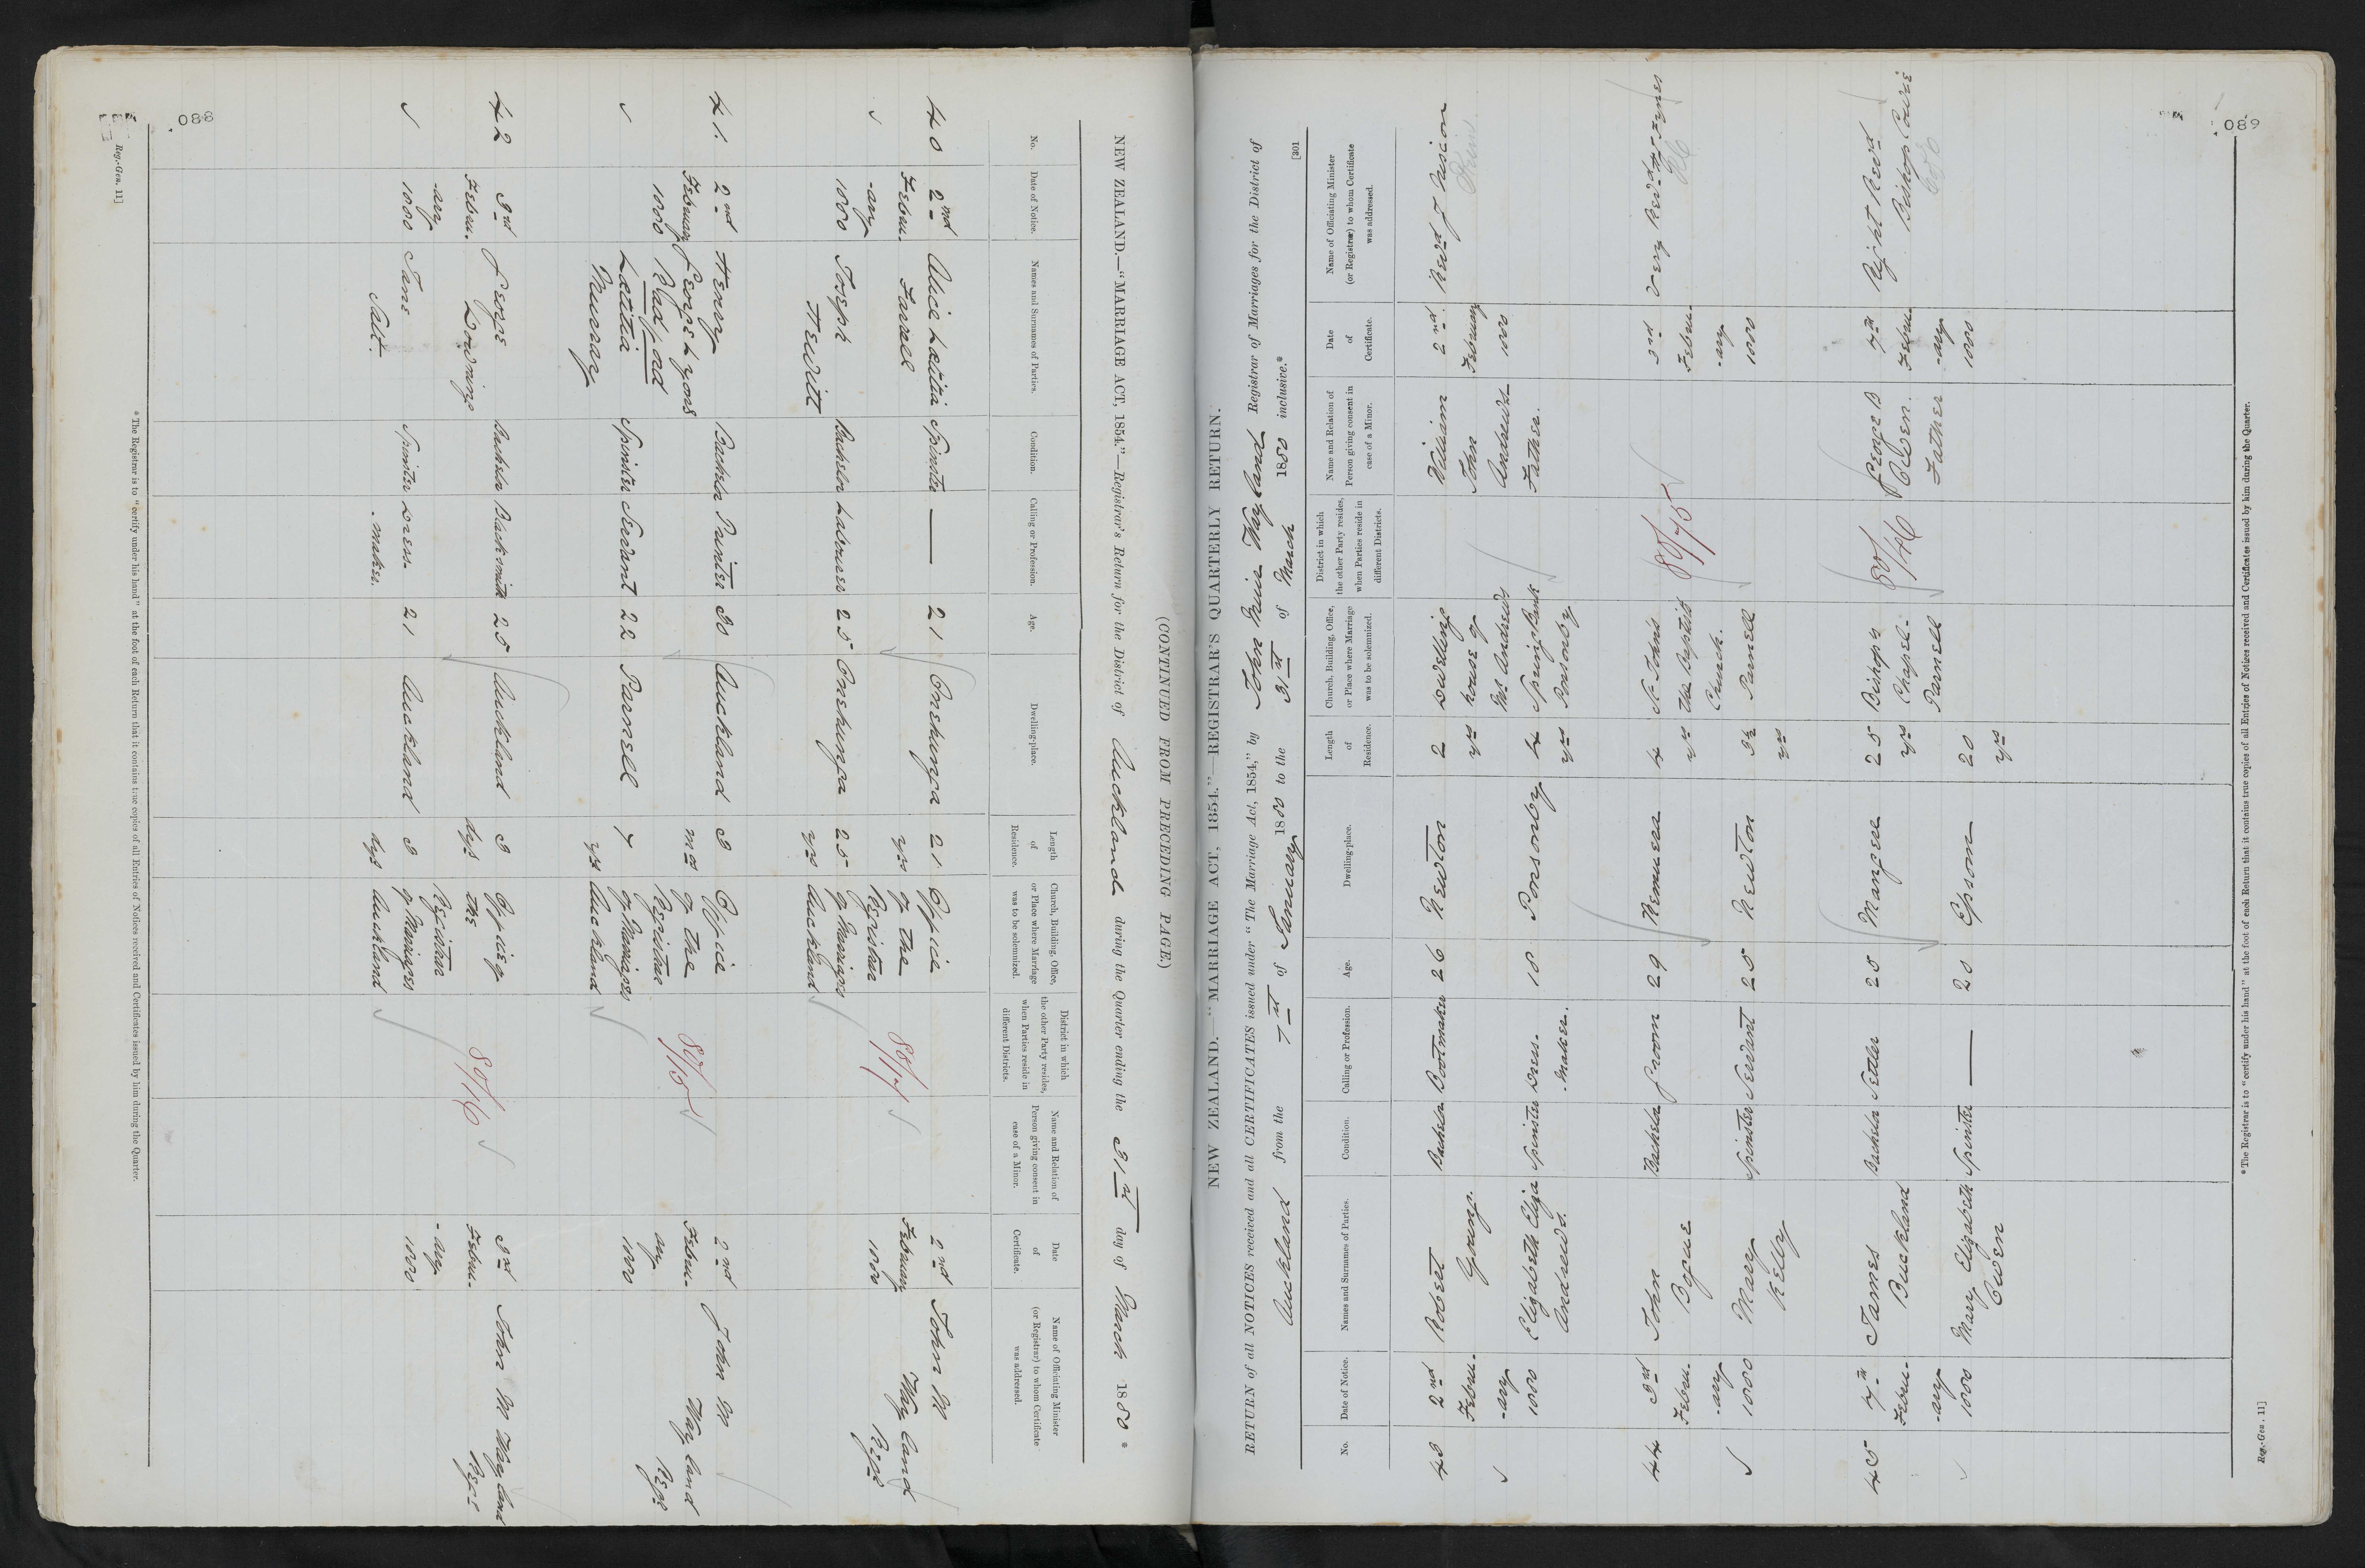 088
(CONTINUED FROM PRECEDING PAGE.)
NEW ZEALAND.—"MARRIAGE ACT, 1854."—Registrar's Return for the District of Auckland during the Quarter ending the 31st day of March 1880 *
No. Date of Notice. Names and Surnames of Parties. Condition. Calling or Profession. Age. Dwelling-place. Length of Residence. Church, Building, Office, or Place where Marriage was to be solemnized. District in which the other Party resides, when Parties reside in different Districts. Name and Relation of Person giving consent in case of a Minor. Date of Certificate. Name of Officiating Minister (or Registrar) to whom Certificate was addressed.
40 2nd Alice Lætitia Spinster — 21 Onehunga 21 Office 2nd John M
Febru- Farrell yrs of the 80/14 February Wayland
-ary Registrar 1880 Regr
1880 Joseph Bachelor Labourer 25 Onehunga 25 of Marriages
Hewitt yrs Auckland
41. 2nd Henry Bachelor Painter 30 Auckland 3 Office 2nd John M
February George Lyons mos of the 80/15 Febru- Wayland
1880 Radford Registrar ary Regr
Lætitia Spinster Servant 22 Parnell 7 of Marriages 1880
Murray yrs Auckland
42 3rd George Bachelor Blacksmith 25 Auckland 3 Office of 3rd John M Wayland
Febru- Downing dys the 80/16 Febru- Regr
-ary Registrar -ary
1880 Jane Spinster Dress- 21 Auckland 3 of Marriages 1880
Salt. -maker. dys Auckland
* The Registrar is to "certify under his hand" at the foot of each Return that it contains true copies of all Entries of Notices received and Certificates issued by him during the Quarter.
Reg.-Gen. 11]
089
[301
NEW ZEALAND.—"MARRIAGE ACT, 1854."—REGISTRAR'S QUARTERLY RETURN.
RETURN of all NOTICES received and all CERTIFICATES issued under "The Marriage Act, 1854," by John Muir Wayland Registrar of Marriages for the District of
Auckland from the 7th of January 1880 to the 31st of March 1880 inclusive.*
No. Date of Notice. Names and Surnames of Parties. Condition. Calling or Profession. Age. Dwelling-place. Length of Residence. Church, Building, Office, or Place where Marriage was to be solemnized. District in which the other Party resides, when Parties reside in different Districts. Name and Relation of Person giving consent in case of a Minor. Date of Certificate. Name of Officiating Minister (or Registrar) to whom Certificate was addressed.
43 2nd Robert Bachelor Bootmaker 26 Newton 2 Dwelling William 2nd Revd J
Febru- Young. yrs house of John February
-ary Mr Andrews Andrews 1880
1880 Elizabeth Eliza Spinster Dress- 18 Ponsonby 4 Spring Bank Father.
Andrews. -maker. yrs Ponsonby
44 3rd John Bachelor Groom 29 Remuera 4 St John's 80/75 3rd Very Revd
Febru- Bogue yrs the Baptist Febru- RC
-ary Church. -ary
1880 Mary Spinster Servant 25 Newton 3½ Parnell 1880
Kelly yrs
45 7th James Bachelor Settler 25 Mangere 25 Bishop's 80/76 George B 7th Right Revd
Febru- Buckland yrs Chapel- Owen. Febru- Bishop Cowie
-ary Parnell Father -ary
1880 Mary Elizabeth Spinster — 20 Epsom 20 1880
Owen yrs
* The Registrar is to "certify under his hand" at the foot of each Return that it contains true copies of all Entries of Notices received and Certificates issued by him during the Quarter.
Reg.-Gen. 11]